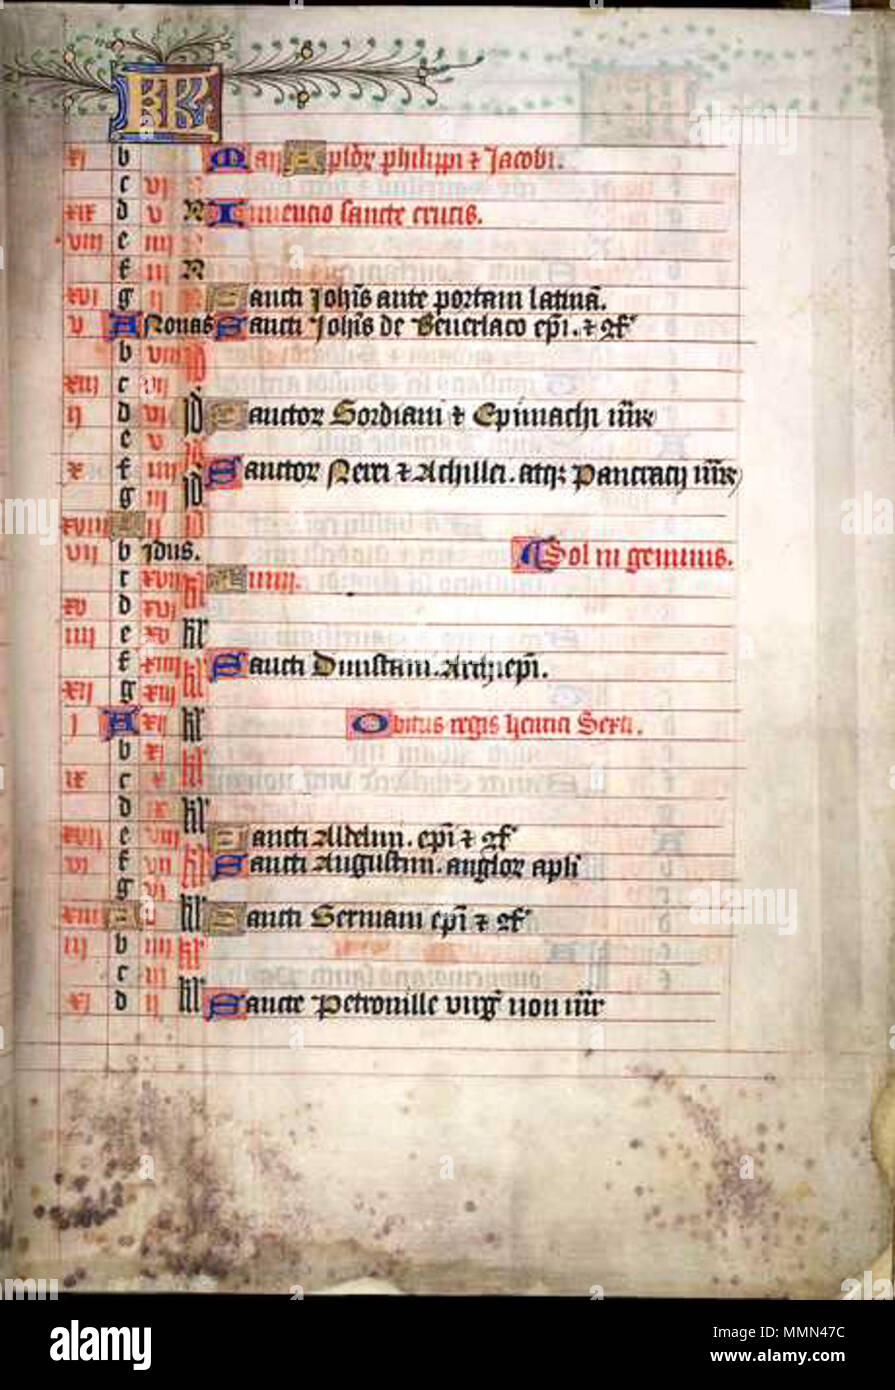 KL
xj b Maij Aplõr philippi ⁊ Jacobi.
c vj N
xix d v N Inuencio sancte crucis.
viij e iiij N
f iij N
xvj g ij N Sancti Joh̃is ante portam latinã.
v A Nonas Sancti Joh̃is de Beuerlaco ep̃i. ⁊ ɔf̃
b viij jd
xiij c vij
ij d vj jd Sanctor Gordiani ⁊ Epimachi m̃r
e v jd
x f iiij jd Sanctor Nerei ⁊ Achillei. atqz Pancracij m̃r
g iij jd
xviij A ij jd
vij b jdus. Sol in geminis.
c xvij kl Junij.
xv d xvj kl
iiij e xv kl
f xiiij kl Sancti Dunstani. Archiep̃i.
xij g xiij kl
j A xij kl Obitus regis henrici Sexti.
b xj kl
ix c x kl
d ix kl
xvij e viij kl Sancti Aldelmi. ep̃i ⁊ ɔf̃
vj f vij kl Sancti Augustini. anglor apli
g vj kl
xiiij A v kl Sancti Germani ep̃i ⁊ ɔf̃
iij b iiij kl
c iij kl
xj d ij kl Sancte Petronille virg̃ non m̃r
alamy
alamy
Image ID: MMN47C
www.alamy.com